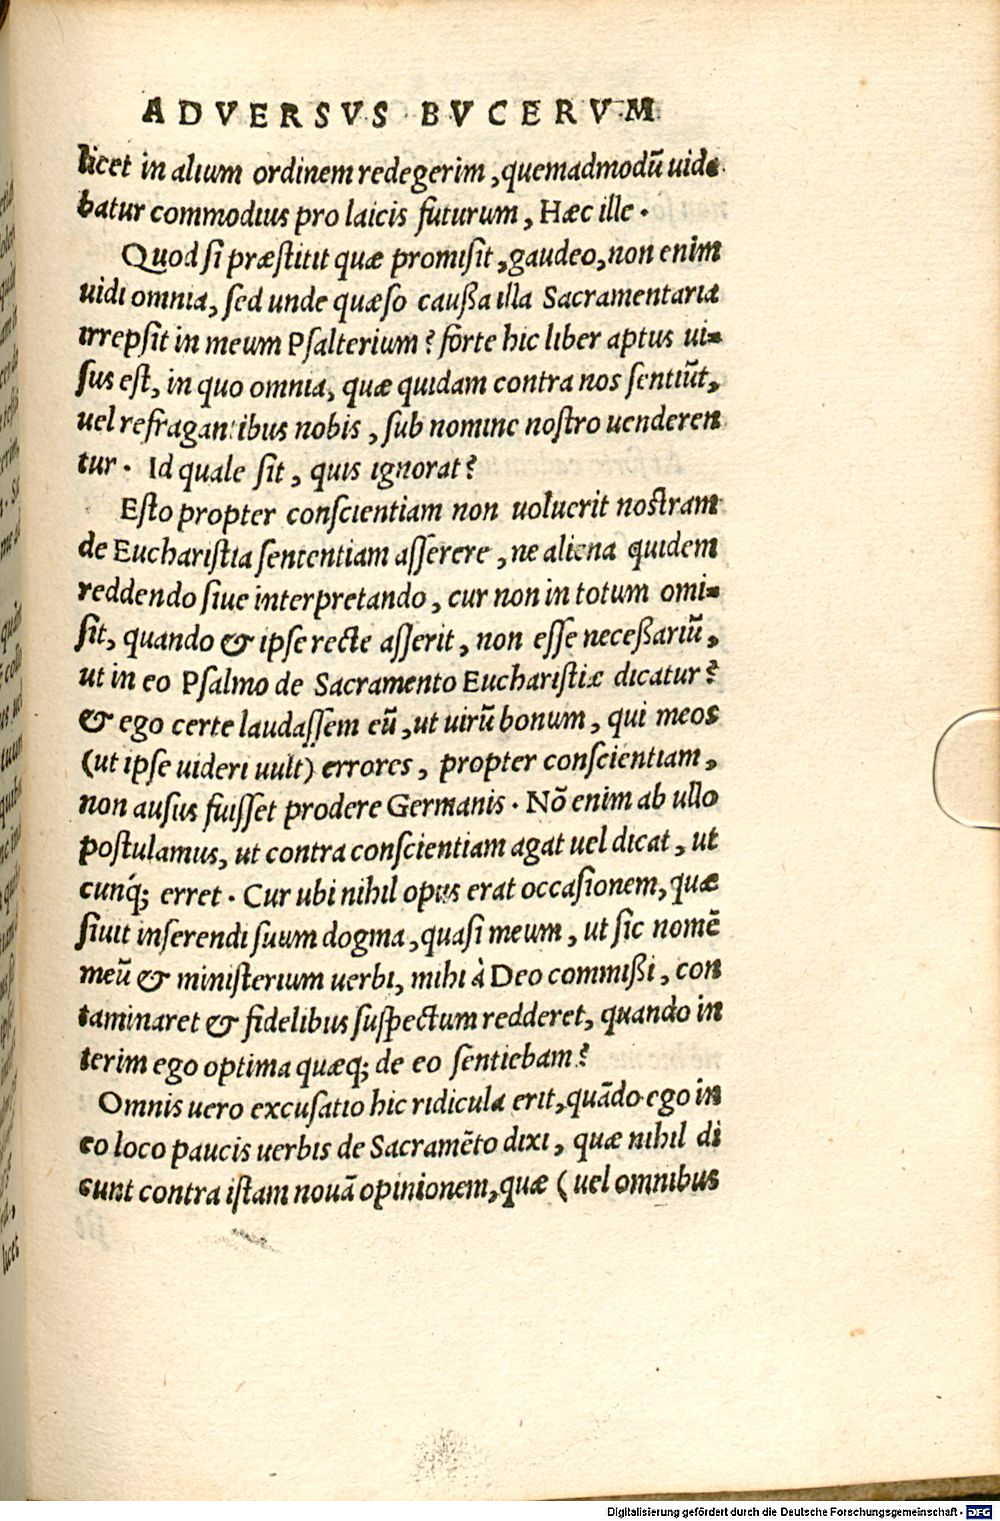 ADVERSVS BVCERVM
licet in alium ordinem redegerim, quemadmodū uide
batur commodius pro laicis futurum, Hæc ille.
Quod si præstitit quæ promisit, gaudeo, non enim
uidi omnia, sed unde quæso caußa illa Sacramentaria
irrepsit in meum Psalterium? forte hic liber aptus ui=
sus est, in quo omnia, quæ quidam contra nos sentiūt,
uel refragantibus nobis, sub nomine nostro uenderen
tur. Id quale sit, quis ignorat?
Esto propter conscientiam non uoluerit nostram
de Eucharistia sententiam asserere, ne aliena quidem
reddendo siue interpretando, cur non in totum omi=
sit, quando & ipse recte asserit, non esse neceßariū,
ut in eo Psalmo de Sacramento Eucharistiæ dicatur?
& ego certe laudassem eū, ut uirū bonum, qui meos
(ut ipse uideri uult) errores, propter conscientiam,
non ausus fuisset prodere Germanis. Nō enim ab ullo
postulamus, ut contra conscientiam agat uel dicat, ut
cunq́; erret. Cur ubi nihil opus erat occasionem, quæ
siuit inserendi suum dogma, quasi meum, ut sic nomē
meū & ministerium uerbi, mihi à Deo commißi, con
taminaret & fidelibus suspectum redderet, quando in
terim ego optima quæq; de eo sentiebam?
Omnis uero excusatio hic ridicula erit, quādo ego in
eo loco paucis uerbis de Sacramēto dixi, quæ nihil di
cunt contra istam nouā opinionem, quæ (uel omnibus
Digitalisierung gefördert durch die Deutsche Forschungsgemeinschaft - DFG